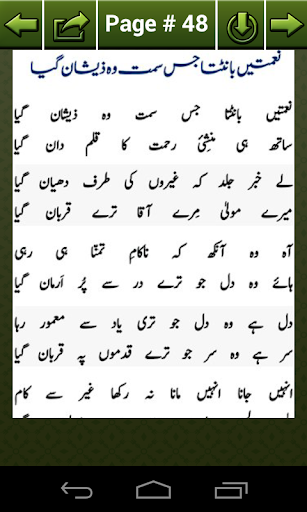 Page # 48
نعمتیں بانٹتا جس سمت وہ ذیشان گیا
نعمتیں بانٹتا جس سمت وہ ذیشان گیا
ساتھ ہی منشیٔ رحمت کا قلم دان گیا
لے خبر جلد کہ غیروں کی طرف دھیان گیا
میرے مولیٰ مِرے آقا ترے قربان گیا
آہ وہ آنکھ کہ ناکامِ تمنّا ہی رہی
ہائے وہ دل جو ترے در سے پُر اَرمان گیا
دل ہے وہ دل جو تری یاد سے معمور رہا
سر ہے وہ سر جو ترے قدموں پہ قربان گیا
انہیں جانا انہیں مانا نہ رکھا غیر سے کام